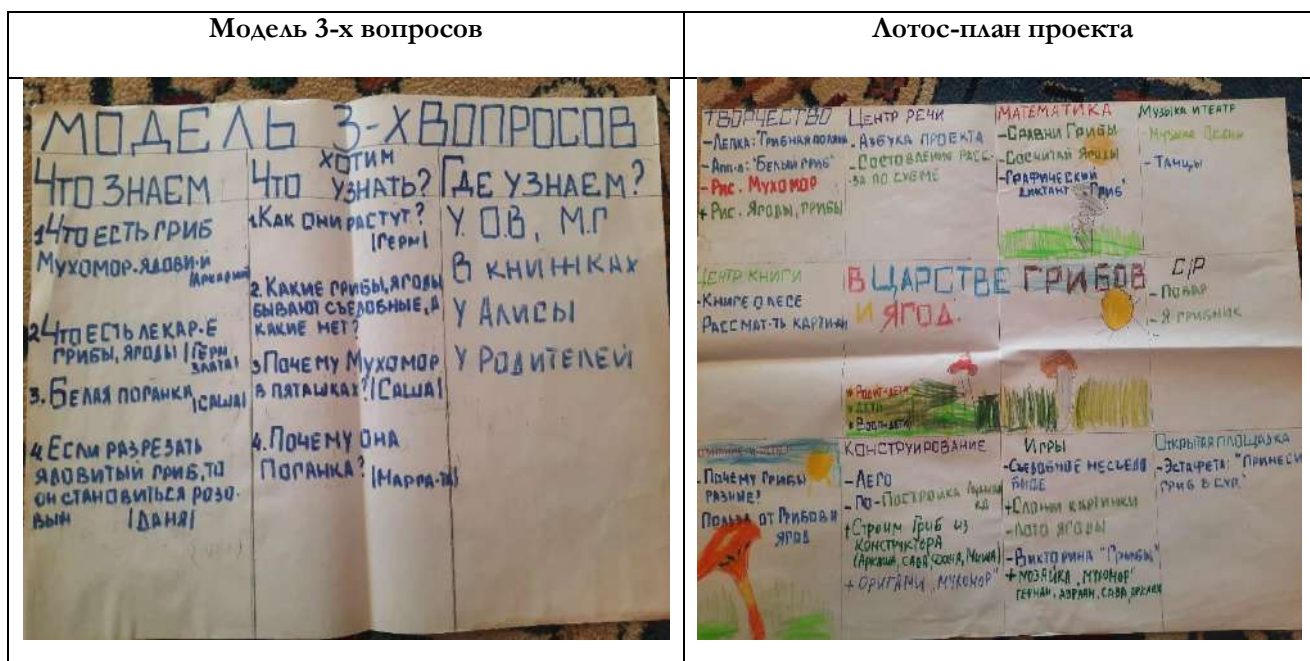 Модель 3-х вопросов
МОДЕЛЬ 3-Х ВОПРОСОВ
ЧТО ЗНАЕМ
1 ЧТО ЕСТЬ ГРИБ
МУХОМОР-ЯДОВИ-Й
|АРКАДИЙ|
2 ЧТО ЕСТЬ ЛЕКАР-Е
ГРИБЫ, ЯГОДЫ |ГЕРМ
ЗЛАТА|
3. БЕЛАЯ ПОГАНКА |САША|
4. ЕСЛИ РАЗРЕЗАТЬ
ЯДОВИТЫЙ ГРИБ, ТО
ОН СТАНОВИТЬСЯ РОЗО-
ВЫМ |ДАНЯ|
ЧТО ХОТИМ
УЗНАТЬ?
1. КАК ОНИ РАСТУТ?
|ГЕРМ|
2. КАКИЕ ГРИБЫ, ЯГОДЫ
БЫВАЮТ СЪЕДОБНЫЕ, А
КАКИЕ НЕТ?
3 ПОЧЕМУ МУХОМОР
В ПЯТАШКАХ? |САША|
4. ПОЧЕМУ ОНА
ПОГАНКА?
ГДЕ УЗНАЕМ?
У О.В, М.Г
В КНИЖКАХ
У АЛИСЫ
У РОДИТЕЛЕЙ
Лотос-план проекта
ТВОРЧЕСТВО
-ЛЕПКА: "ГРИБНАЯ ПОЛЯНА
-АПП-Я: "БЕЛЫЙ ГРИБ"
-РИС. МУХОМОР
+ РИС. ЯГОДЫ, ГРИБЫ
ЦЕНТР РЕЧИ
-АЗБУКА ПРОЕКТА
-СОСТОВЛЕНИЕ РАСС-
-ЗА ПО СХЕМЕ
МАТЕМАТИКА
-СРАВНИ ГРИБЫ
-СОСЧИТАЙ ЯГОДЫ
-ГРАФИЧЕСКИЙ
ДИКТАНТ "ГРИБ"
МУЗЫКА И ТЕАТР
-МУЗЫКА
-ТАНЦЫ
ЦЕНТР КНИГИ
-КНИГЕ О ЛЕСЕ
РАССМАТ-ТЬ КАРТИН-И
В ЦАРСТВЕ ГРИБОВ
И ЯГОД.
С/Р
-ПОВАР
-Я ГРИБНИК
-ПОЧЕМУ ГРИБЫ
РАЗНЫЕ?
ПОЛЬЗА ОТ ГРИБОВ И
ЯГОД
КОНСТРУИРОВАНИЕ
-ЛЕГО
-ПО-ПОСТРОЙКА
+СТРОИМ ГРИБ ИЗ
КОНСТРУКТОРА
(АРКАША, САВА, МИША)
+ ОРИГАМИ "МУХОМОР"
ИГРЫ
-СЪЕДОБНОЕ НЕСЪЕДО
БНОЕ
+СЛОЖИ КАРТИНКИ
-ЛОТО ЯГОДЫ
-ВИКТОРИНА "ГРИБЫ"
+ МОЗАЙКА "МУХОМОР"
ОТКРЫТАЯ ПЛОЩАДКА
-ЭСТАФЕТА: "ПРИНЕСИ
ГРИБ В СУП"